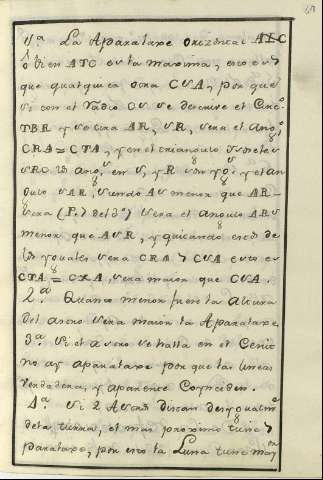 1ª La Aparalaxe orizontal ALC
o bien ATC es la maxima, esto es
que qualquiera otra CVA, por que
si con el radio CV se descrive el Circº
TBR y se tira AR, VR, sera el Angº
CRA = CTA, y en el triangulo
VRC los angˢ en V, y R son ygˢ y el an
gulo VAR, siendo AV menor que AR
sera (P. del 3º) sera el angulo ARV
menor que AVR, y quitando estos de
los yguales sera CRA > CVA esto es
CTA = CRA, sera maior que CVA.
2ª Quanto menor fuere la altura
del astro sera maior la Aparalaxe
3ª Si el astro se halla en el Cenit
no ay aparalaxe por que las lineas
verdadera, y aparente Coynciden.
4ª Si 2 Astros distan desygualmᵗᵉ
dela tierra, el mas proximo tiene
paralaxe, por esto la Luna tiene mayᵒʳ